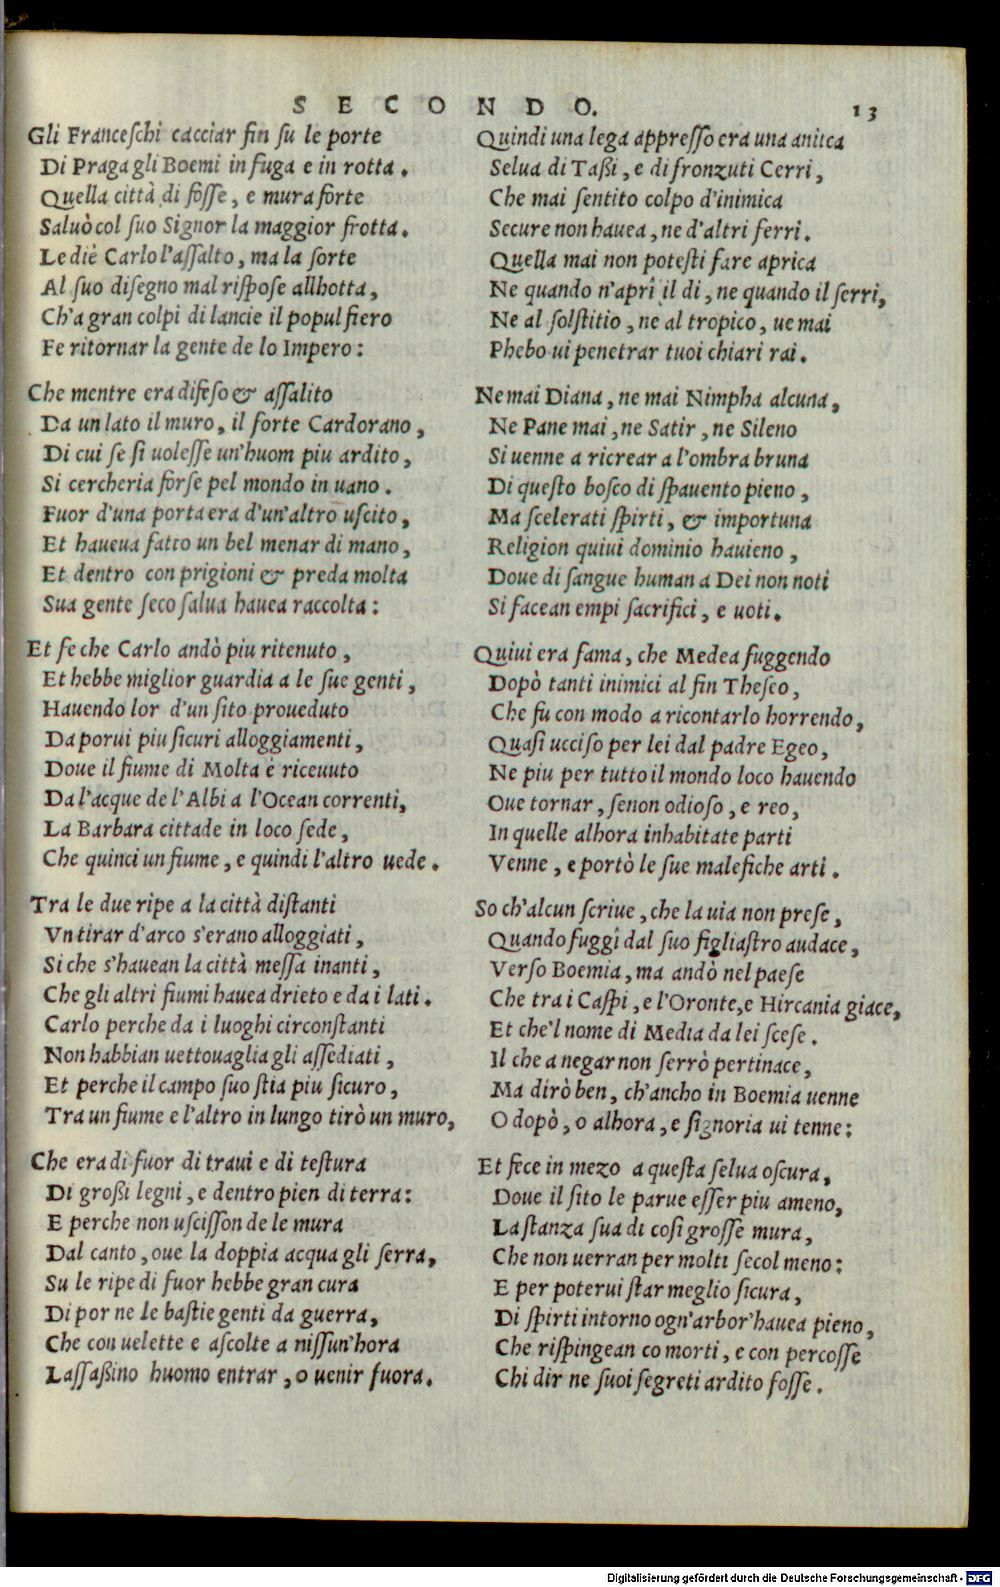 SECONDO. 13
Gli Franceschi cacciar fin su le porte
Di Praga gli Boemi in fuga e in rotta.
Quella città di fosse, e mura forte
Saluò col suo Signor la maggior frotta.
Le diè Carlo l'assalto, ma la sorte
Al suo disegno mal rispose allhotta,
Ch'a gran colpi di lancie il popul fiero
Fe ritornar la gente de lo Impero:
Che mentre era difeso & assalito
Da un lato il muro, il forte Cardorano,
Di cui se si uolesse un'huom piu ardito,
Si cercheria forse pel mondo in uano.
Fuor d'una porta era d'un'altro uscito,
Et haueua fatto un bel menar di mano,
Et dentro con prigioni & preda molta
Sua gente seco salua hauea raccolta:
Et fe che Carlo andò piu ritenuto,
Et hebbe miglior guardia a le sue genti,
Hauendo lor d'un sito proueduto
Da porui piu sicuri alloggiamenti,
Doue il fiume di Molta è riceuuto
Da l'acque de l'Albi a l'Ocean correnti,
La Barbara cittade in loco sede,
Che quinci un fiume, e quindi l'altro uede.
Tra le due ripe a la città distanti
Vn tirar d'arco s'erano alloggiati,
Si che s'hauean la città messa inanti,
Che gli altri fiumi hauea drieto e da i lati.
Carlo perche da i luoghi circonstanti
Non habbian uettouaglia gli assediati,
Et perche il campo suo stia piu sicuro,
Tra un fiume e l'altro in lungo tirò un muro,
Che era di fuor di traui e di testura
Di grossi legni, e dentro pien di terra:
E perche non uscisson de le mura
Dal canto, oue la doppia acqua gli serra,
Su le ripe di fuor hebbe gran cura
Di por ne le bastie genti da guerra,
Che con uelette e ascolte a nissun'hora
Lassassino huomo entrar, o uenir fuora.
Quindi una lega appresso era una antica
Selua di Tassi, e di fronzuti Cerri,
Che mai sentito colpo d'inimica
Secure non hauea, ne d'altri ferri.
Quella mai non potesti fare aprica
Ne quando n'aprî il di, ne quando il serri,
Ne al solstitio, ne al tropico, ue mai
Phebo ui penetrar tuoi chiari rai.
Ne mai Diana, ne mai Nimpha alcuna,
Ne Pane mai, ne Satir, ne Sileno
Si uenne a ricrear a l'ombra bruna
Di questo bosco di spauento pieno,
Ma scelerati spirti, & importuna
Religion quiui dominio hauieno,
Doue di sangue human a Dei non noti
Si facean empi sacrifici, e uoti.
Quiui era fama, che Medea fuggendo
Dopò tanti inimici al fin Theseo,
Che fu con modo a ricontarlo horrendo,
Quasi ucciso per lei dal padre Egeo,
Ne piu per tutto il mondo loco hauendo
Oue tornar, senon odioso, e reo,
In quelle alhora inhabitate parti
Venne, e portò le sue malefiche arti.
So ch'alcun scriue, che la uia non prese,
Quando fuggî dal suo figliastro audace,
Verso Boemia, ma andò nel paese
Che tra i Caspi, e l'Oronte, e Hircania giace,
Et che'l nome di Media da lei scese.
Il che a negar non serrò pertinace,
Ma dirò ben, ch'ancho in Boemia uenne
O dopò, o alhora, e signoria ui tenne:
Et fece in mezo a questa selua oscura,
Doue il sito le parue esser piu ameno,
La stanza sua di cosi grosse mura,
Che non uerran per molti secol meno:
E per poterui star meglio sicura,
Di spirti intorno ogn'arbor'hauea pieno,
Che rispingean co morti, e con percosse
Chi dir ne suoi segreti ardito fosse.
Digitalisierung gefördert durch die Deutsche Forschungsgemeinschaft - DFG